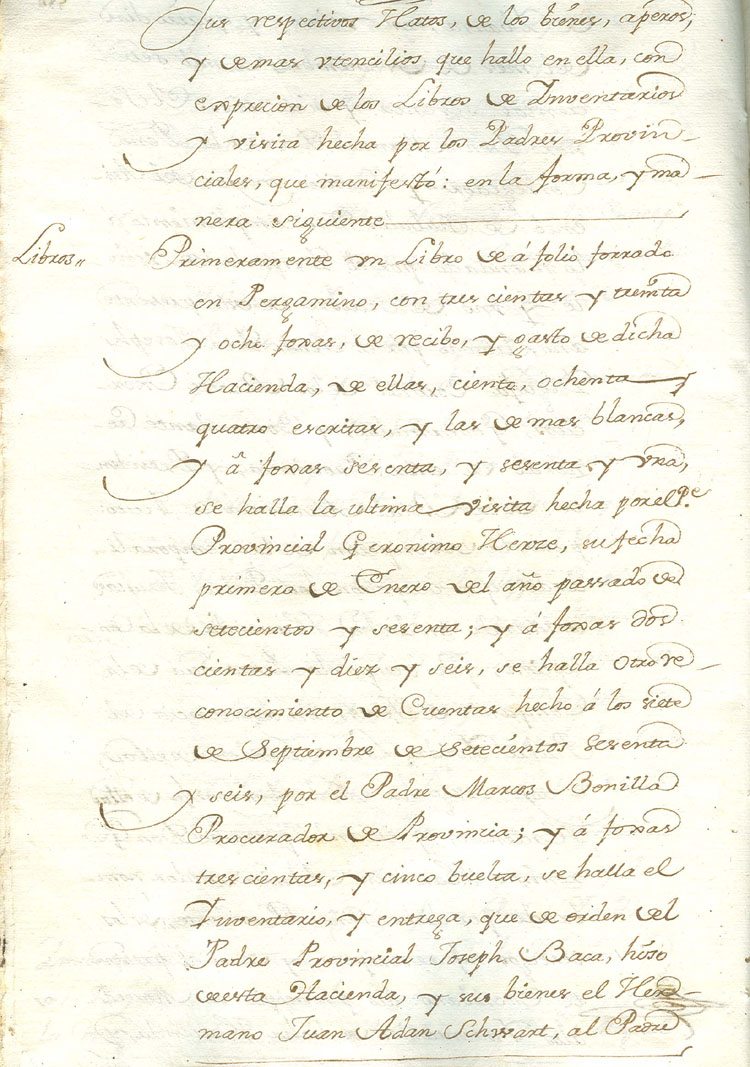 sus respectivos Hatos, de los bienes, áperos,
y demas vtencilios que hallo en ella, con
exprecion de los Libros de Inventarios
y visita hecha por los Padres Provin-
ciales, que manifestó: en la forma, y ma-
nera siguiente
Libros"
Primeramente vn Libro de á folio forrado
en Pergamino, con tres cientas y treinta
y ocho foxas, de recibo, y gasto de dicha
Hacienda, de ellas, ciento, ochenta y
quatro escritas, y las demas blancas,
y â foxas sesenta, y sesenta y vna,
se halla la ultima visita hecha por el P.e
Provincial Geronimo Herze, su fecha
primero de Enero del año passado de
setecientos y sesenta; y á foxas dos
cientas y diez y seis, se halla otro re-
conocimiento de Cuentas hecho á los siete
de Septiembre de setecientos sesenta
y seis, por el Padre Marcos Bonilla
Procurador de Provincia; y á foxas
trescientas, y cinco buelta, se halla el
Inventario, y entrega, que de orden del
Padre Provincial Joseph Baca, hizo
de esta Hacienda, y sus bienes el Her-
mano Juan Adan Schwart, al Padre